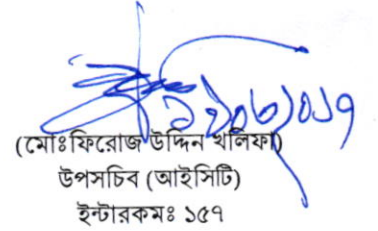 (মোঃফিরোজ উদ্দিন খলিফা)
উপসচিব (আইসিটি)
ইন্টারকমঃ ১৫৭